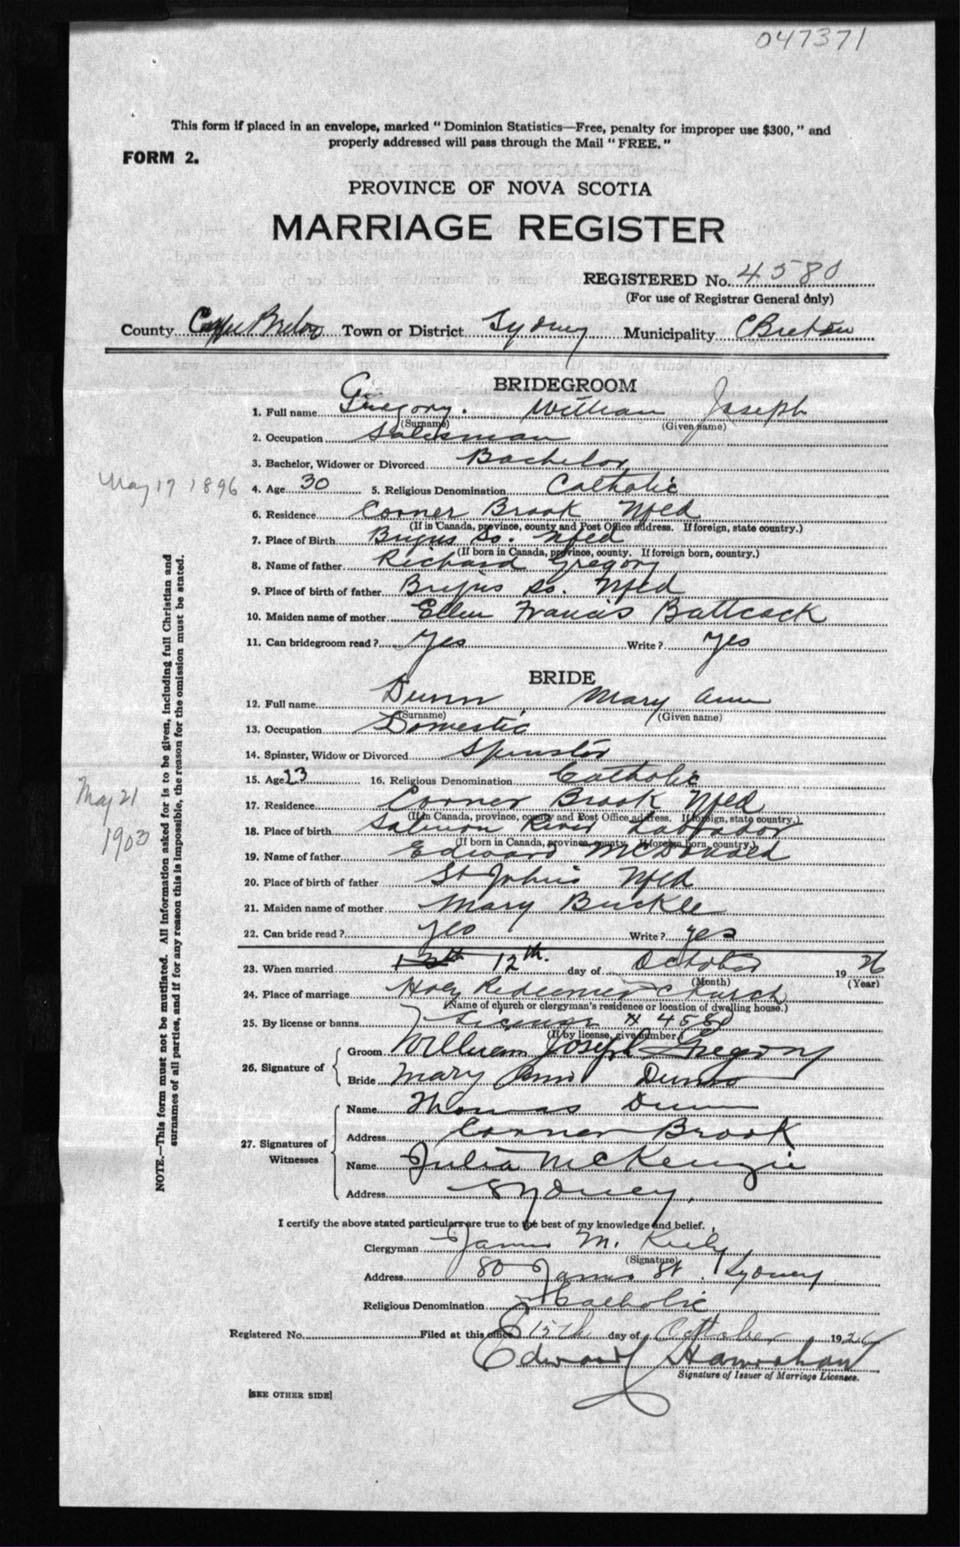 047371
This form if placed in an envelope, marked " Dominion Statistics—Free, penalty for improper use $300, " and
properly addressed will pass through the Mail " FREE. "
FORM 2.
PROVINCE OF NOVA SCOTIA
MARRIAGE REGISTER
REGISTERED No. 4580
(For use of Registrar General only)
County Cape Breton Town or District Sydney Municipality C Breton
BRIDEGROOM
1. Full name Gregory. William Joseph
(Surname) (Given name)
2. Occupation Salesman
3. Bachelor, Widower or Divorced Bachelor
May 17 1896
4. Age 30 5. Religious Denomination Catholic
6. Residence Corner Brook Nfld
(If in Canada, province, county and Post Office address. If foreign, state country.)
7. Place of Birth Brigus So. Nfld
(If born in Canada, province, county. If foreign born, country.)
8. Name of father Richard Gregory
9. Place of birth of father Brigus So. Nfld
10. Maiden name of mother Ellen Francis Battcock
11. Can bridegroom read? Yes Write? Yes
BRIDE
12. Full name Dunn Mary Ann
(Surname) (Given name)
13. Occupation Domestic
14. Spinster, Widow or Divorced Spinster
15. Age 23 16. Religious Denomination Catholic
May 21
1903
17. Residence Corner Brook Nfld
(If in Canada, province, county and Post Office address. If foreign, state country.)
18. Place of birth Salmon River Labrador
(If born in Canada, province, county. If foreign born, country.)
19. Name of father Edward McDonald
20. Place of birth of father St Johns Nfld
21. Maiden name of mother Mary Buckle
22. Can bride read? yes Write? yes
23. When married 13th 12th. day of October 1926
(Month) (Year)
24. Place of marriage Holy Redeemer Church
(Name of church or clergyman's residence or location of dwelling house.)
25. By license or banns License # 4580
(If by license, give number)
26. Signature of
Groom William Joseph Gregory
Bride Mary Ann Dunn
27. Signatures of Witnesses
Name Thomas Dunn
Address Corner Brook
Name Julia McKenzie
Address Sydney.
I certify the above stated particulars are true to the best of my knowledge and belief.
Clergyman James M. Kiely
(Signature)
Address 80 James St. Sydney
Religious Denomination Catholic
Registered No. Filed at this office 15th day of October 1926
Edward
Signature of Issuer of Marriage Licenses.
[SEE OTHER SIDE]
NOTE.—This form must not be mutilated. All information asked for is to be given, including full Christian and
surnames of all parties, and if for any reason this is impossible, the reason for the omission must be stated.